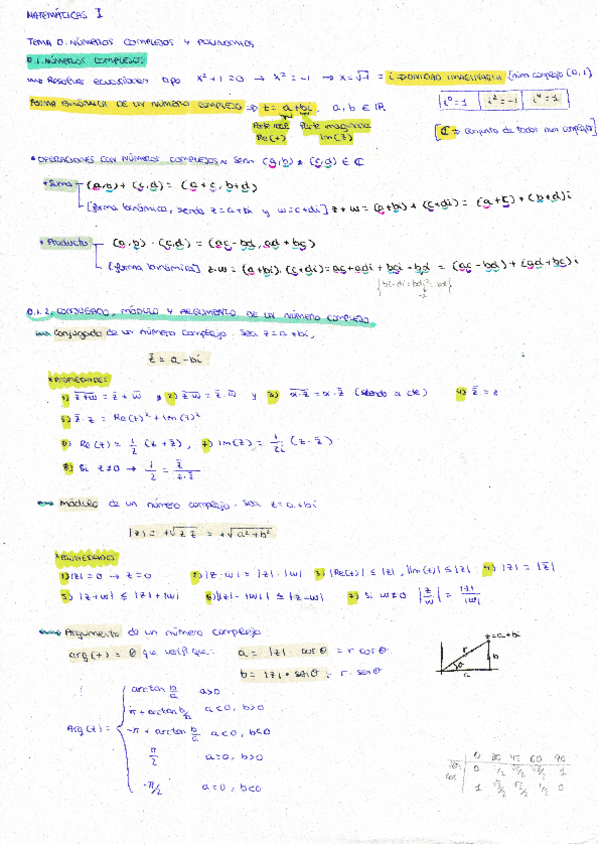 MATEMÁTICAS I
TEMA 0. NÚMEROS COMPLEJOS Y POLINOMIOS
0.1. NÚMEROS COMPLEJOS
Resolver ecuaciones tipo x² + 1 = 0 → x² = -1 → x = √-1 = i UNIDAD IMAGINARIA (núm complejo (0,1)
FORMA BINÓMICA DE UN NÚMERO COMPLEJO → z = a + bi, a, b ∈ ℝ
i⁰ = 1 | i² = -1 | i⁴ = 1
Parte real Re(z) Parte imaginaria Im(z)
[ℂ → conjunto de todos núm complejos]
• OPERACIONES CON NÚMEROS COMPLEJOS Sean (a,b) y (c,d) ∈ ℂ
* Suma (a,b) + (c,d) = (a+c, b+d)
[forma binómica, siendo z = a+bi y w = c+di] z + w = (a+bi) + (c+di) = (a+c) + (b+d)i
* Producto (a,b) · (c,d) = (ac - bd, ad + bc)
[forma binómica] z·w = (a+bi)·(c+di) = ac + adi + bci - bd = (ac - bd) + (ad + bc)i
-1
0.1.2. CONJUGADO, MÓDULO Y ARGUMENTO DE UN NÚMERO COMPLEJO
Conjugado de un número complejo. Sea z = a + bi,
z̄ = a - bi
PROPIEDADES
1) z̄+w̄ = z̄ + w̄ y 2) z̄w̄ = z̄·w̄ y 3) α·z̄ = α·z̄ (siendo α cte) 4) z̄ = z
5) z̄·z = Re(z)² + Im(z)²
6) Re(z) = 1/2 (z + z̄), 7) Im(z) = 1/2i (z - z̄)
8) Si z ≠ 0 → 1/z = z̄/z·z̄
Módulo de un número complejo. Sea z = a + bi
|z| = +√z z̄ = +√a² + b²
PROPIEDADES
1) |z| = 0 → z = 0 2) |z·w| = |z|·|w| 3) |Re(z)| ≤ |z|, |Im(z)| ≤ |z| 4) |z| = |z̄|
5) |z+w| ≤ |z| + |w| 6) ||z| - |w|| ≤ |z-w| 7) Si w ≠ 0 |z/w| = |z|/|w|
Argumento de un número complejo
arg(z) = θ que verifique: a = |z|·cos θ = r cos θ
b = |z|·sen θ = r·sen θ
z = a + bi
r b
θ
a
Arg(z) =
arctan b/a a>0
π + arctan b/a a<0, b>0
-π + arctan b/a a<0, b<0
π/2 a=0, b>0
-π/2 a=0, b<0
0 30 45 60 90
sen 0 1/2 √2/2 √3/2 1
cos 1 √3/2 √2/2 1/2 0